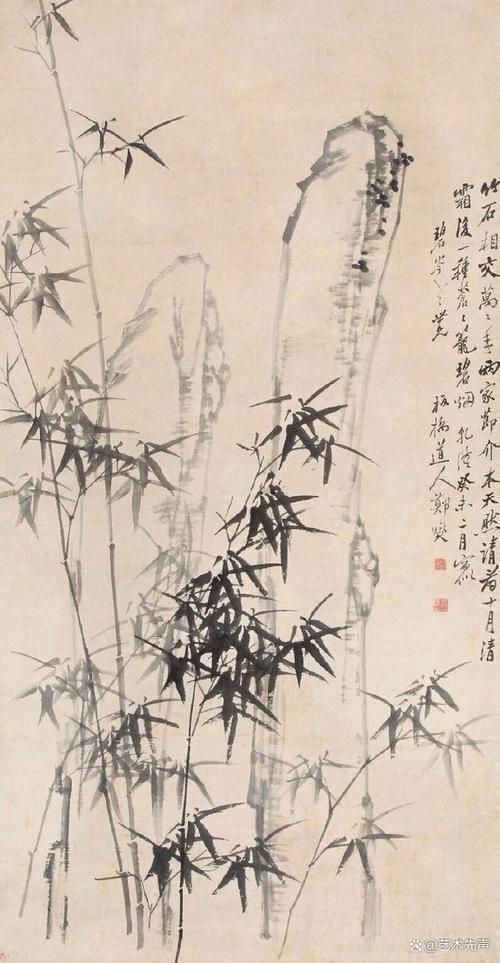 竹石相交萬〻年両家節介本天然請看十月清
霜後一種蒼〻籠碧烟乾隆癸未二月寫似
碧岑
板橋道人鄭燮
@艺术先声